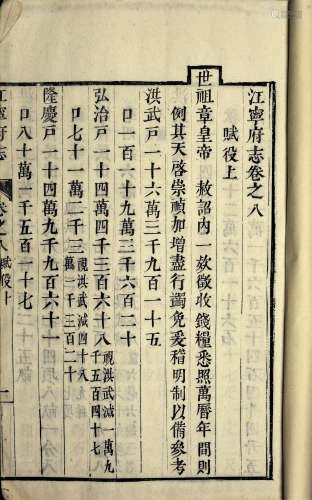 江寧府志卷之八
賦役上
世祖章皇帝 赦詔內一欵徵收錢糧悉照萬曆年間則
例其天啓崇禎加增盡行蠲免爰稽明制以備參考
洪武戸一十六萬三千九百一十五
口一百六十九萬三千六百二十
弘治戸一十四萬四千三百六十八視洪武減一萬九
千五百四十七
口七十 萬二千三
視洪武減四十八九
萬一千三百二十
隆慶戸一十四萬九千九百六十一
口八十萬一千五百一十七
江寧府志
卷之八賦役上
一